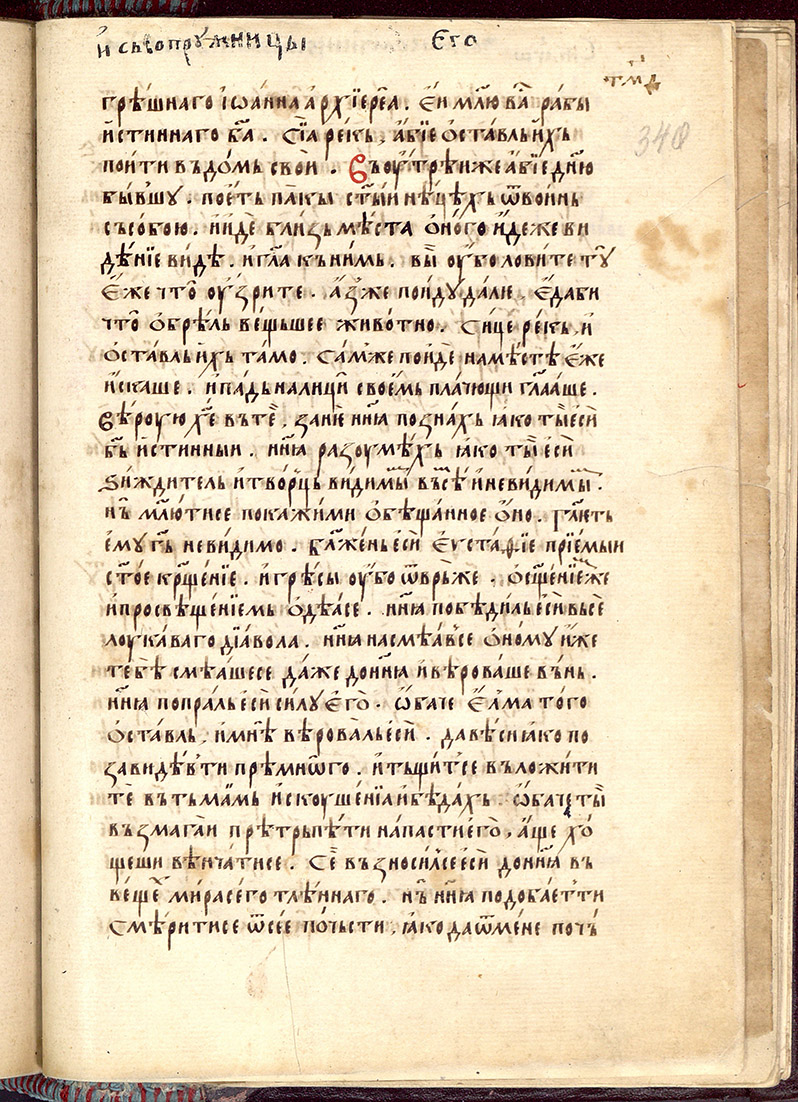 и съвопрꙋжници его
тмѕ
340
грѣ́шнаго іѡа́нна а҆рхїере́а. Е҆́и мл҃ю ва̀ рабы̀
и҆́стиннаго ба҃. Сїа̀ ре́къ, а҆́бїе ѡ҆ста́вль и҆́хъ
поити въ до́мь своѝ. Въ оу҆́трѣи же а҆́бїе дн҃ю
бы́вшу. пое́ть па́кы ст҃ы́и нѣ́цехъ ѿ вои́нь
съ собо́ю. и҆ и҆́де бли́зь мѣ́ста ѻ҆́ного и҆де́же ви
дѣ́нїе ви́дѣ. и҆ гл҃а къ ни́мь. вы̀ оу҆́бо лови́те тꙋ̀
Е҆́же что̀ оу҆́зрите. а҆́з же поидꙋ̀ да́лю. Е҆да̀ би
что̀ ѡ҆брѣ́ль ве́щьшее живо́тно. Си́це ре́къ, и҆
ѡ҆ста́вль и҆́хъ та́мо. Са́м же по́иде на мѣ́стѣ е҆́же
и҆ска́ше. и҆ па́дь на лицѝ свое́мь пла́чющи гл҃а́аше.
Вѣ́роую х҃е въ тѐ, занѐ нн҃ꙗ позна́хь ꙗ҆́ко ты̀ е҆сѝ
бг҃ь и҆́стинныи. нн҃ꙗ разоумѣ́хь ꙗ҆́ко ты̀ е҆сѝ
Ѕижди́тель и҆ тво́рць ви́димым въсе́и и҆ неви́димым.
нь̀ мл҃ю ти се покажи́ ми ѡ҆бѣща́нное ѻ҆́но. Гл҃е́ть
е҆мꙋ гь҃ неви́димо. бл҃же́нь е҆сѝ Еѵста́ѳїе прїе́мыи
ст҃о́е кр҃ще́нїе. и҆ грѣ́сы оу҆́бо ѿврь́же. ѡ҆сщ҃е́нїем же
и҆ просвѣще́нїемь ѡ҆дѣ́а се. нн҃ꙗ побѣди́ль е҆сѝ въсѐ
лоука́ваго дїа́вола. нн҃ꙗ насмѣ́а в се ѻ҆но́мꙋ и҆́же
тебѣ̀ смѣ́аше се да́же до нн҃ꙗ и҆ вѣ́роваше въ́ нь.
нн҃ꙗ попра́ль е҆сѝ си́лꙋ е҆го̀. ѡ҆ба́че Е҆лма̀ то́го
ѡ҆ста́вль, и҆ мнѣ̀ вѣ́роваль е҆сѝ. да вѣ́си ꙗ҆́ко по
зави́дѣв ти прѣмнѡ́го. и҆ тъщи́т се въложи́ти
тѐ въ тьма́мь и҆скоуше́нїа и҆ бѣда́хь. ѡ҆ба́че ты̀
възмага́и прѣтрьпѣ́ти напа́сти е҆го̀, а҆́ще хо́
щеши вѣнча́ти се. Сѐ възноси́л се е҆сѝ до нн҃ꙗ въ
ве́щех ми́ра се́го тлѣ́ннаго. нь̀ нн҃ꙗ подоба́ет ти
смѣ́рити се ѿ се́е по́чьсти, ꙗ҆́ко да ѿ ме́не по́чь